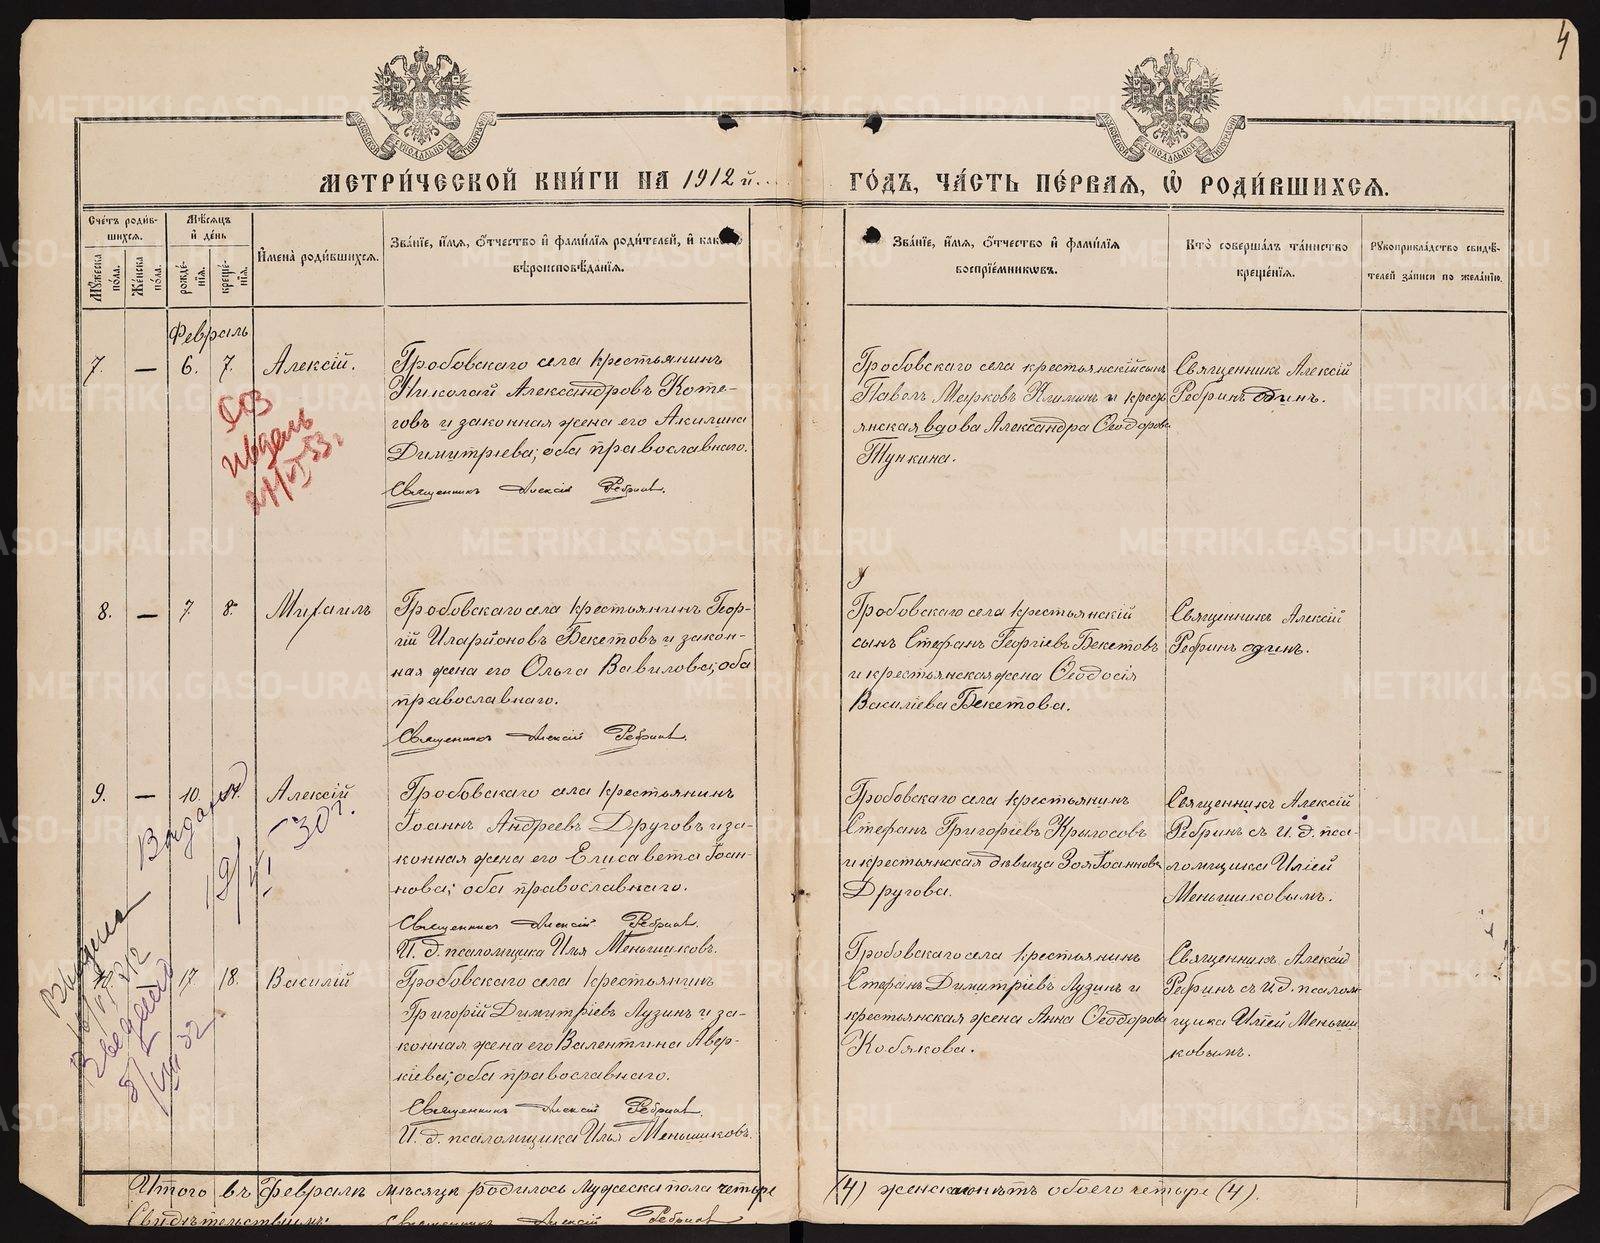 4
МЕТРИ́ЧЕСКОЙ КНИ́ГИ НА 1912й. ГО́ДЪ, ЧА́СТЬ ПЕ́РВАЯ, Ѡ РОДИ́ВШИХСЯ.
Сче́тъ роди́в-
шихся.
Мꙋ́жеска по́ла.
Же́нска по́ла.
Мѣ́сяцъ и де́нь
рожде́-
нїя.
креще́-
нїя.
Имена̀ роди́вшихся.
Зва́нїе, и́мя, ѻ҆́тчество и҆ фами́лїя роди́телей, и҆ како́го
вѣроисповѣ́данїя.
Зва́нїе, и́мя, ѻ҆́тчество и҆ фами́лїя
воспрїе́мникѡвъ.
Кто̀ соверша́лъ та́инство
креще́нїя.
Рꙋкоприкла́дство свидѣ́-
телей за́писи по жела́нїю.
Февраль
7. — 6. 7. Алексій.
Гробовскаго села крестьянинъ
Николай Александровъ Коте-
говъ и законная жена его Акилина
Димитріева; оба православнаго.
Священникъ Алексій Ребринъ.
Гробовскаго села крестьянскій сынъ
Павелъ Марковъ Климинъ и кресть-
янская вдова Александра Ѳеодорова
Тункина.
Священникъ Алексій
Ребринъ один.
8. — 7. 8. Михаилъ
Гробовскаго села крестьянинъ Геор-
гій Иларіоновъ Бекетовъ и закон-
ная жена его Ольга Вавилова; оба
православнаго.
Священникъ Алексій Ребринъ.
Гробовскаго села крестьянскій
сынъ Стефанъ Георгіевъ Бекетовъ
и крестьянская жена Ѳеодосія
Василіева Бекетова.
Священникъ Алексій
Ребринъ одинъ.
9. — 10. Алексій
Гробовскаго села крестьянинъ
Іоаннъ Андреевъ Друговъ и за-
конная жена его Елисавета Іоан-
нова; оба православнаго.
Священникъ Алексій Ребринъ
И. д. псаломщика Илья Меньшиковъ.
Гробовскаго села крестьянинъ
Стефанъ Григоріевъ Крылосовъ
и крестьянская дѣвица Зоя Іоаннова
Другова.
Священникъ Алексій
Ребринъ съ И. д. пса-
ломщика Иліей
Меньшиковымъ.
17 18. Василій
Гробовскаго села крестьянинъ
Григорій Димитріевъ Лузинъ и за-
конная жена его Валентина Авер-
кіева; оба православнаго.
Священникъ Алексій Ребринъ.
И. д. псаломщика Илья Меньшиковъ.
Гробовскаго села крестьянинъ
Стефанъ Димитріевъ Лузинъ и
крестьянская жена Анна Ѳеодорова
Кобякова.
Священникъ Алексій
Ребринъ съ И. д. псалом-
щика Иліей Меньши-
ковымъ.
Итого въ Февралѣ мѣсяцѣ родилось мужеска пола четыре (4) женскаго нѣтъ обоего четыре (4).
Свидѣтельствуемъ: Священникъ Алексій Ребринъ
METRIKI.GASO-URAL.RU